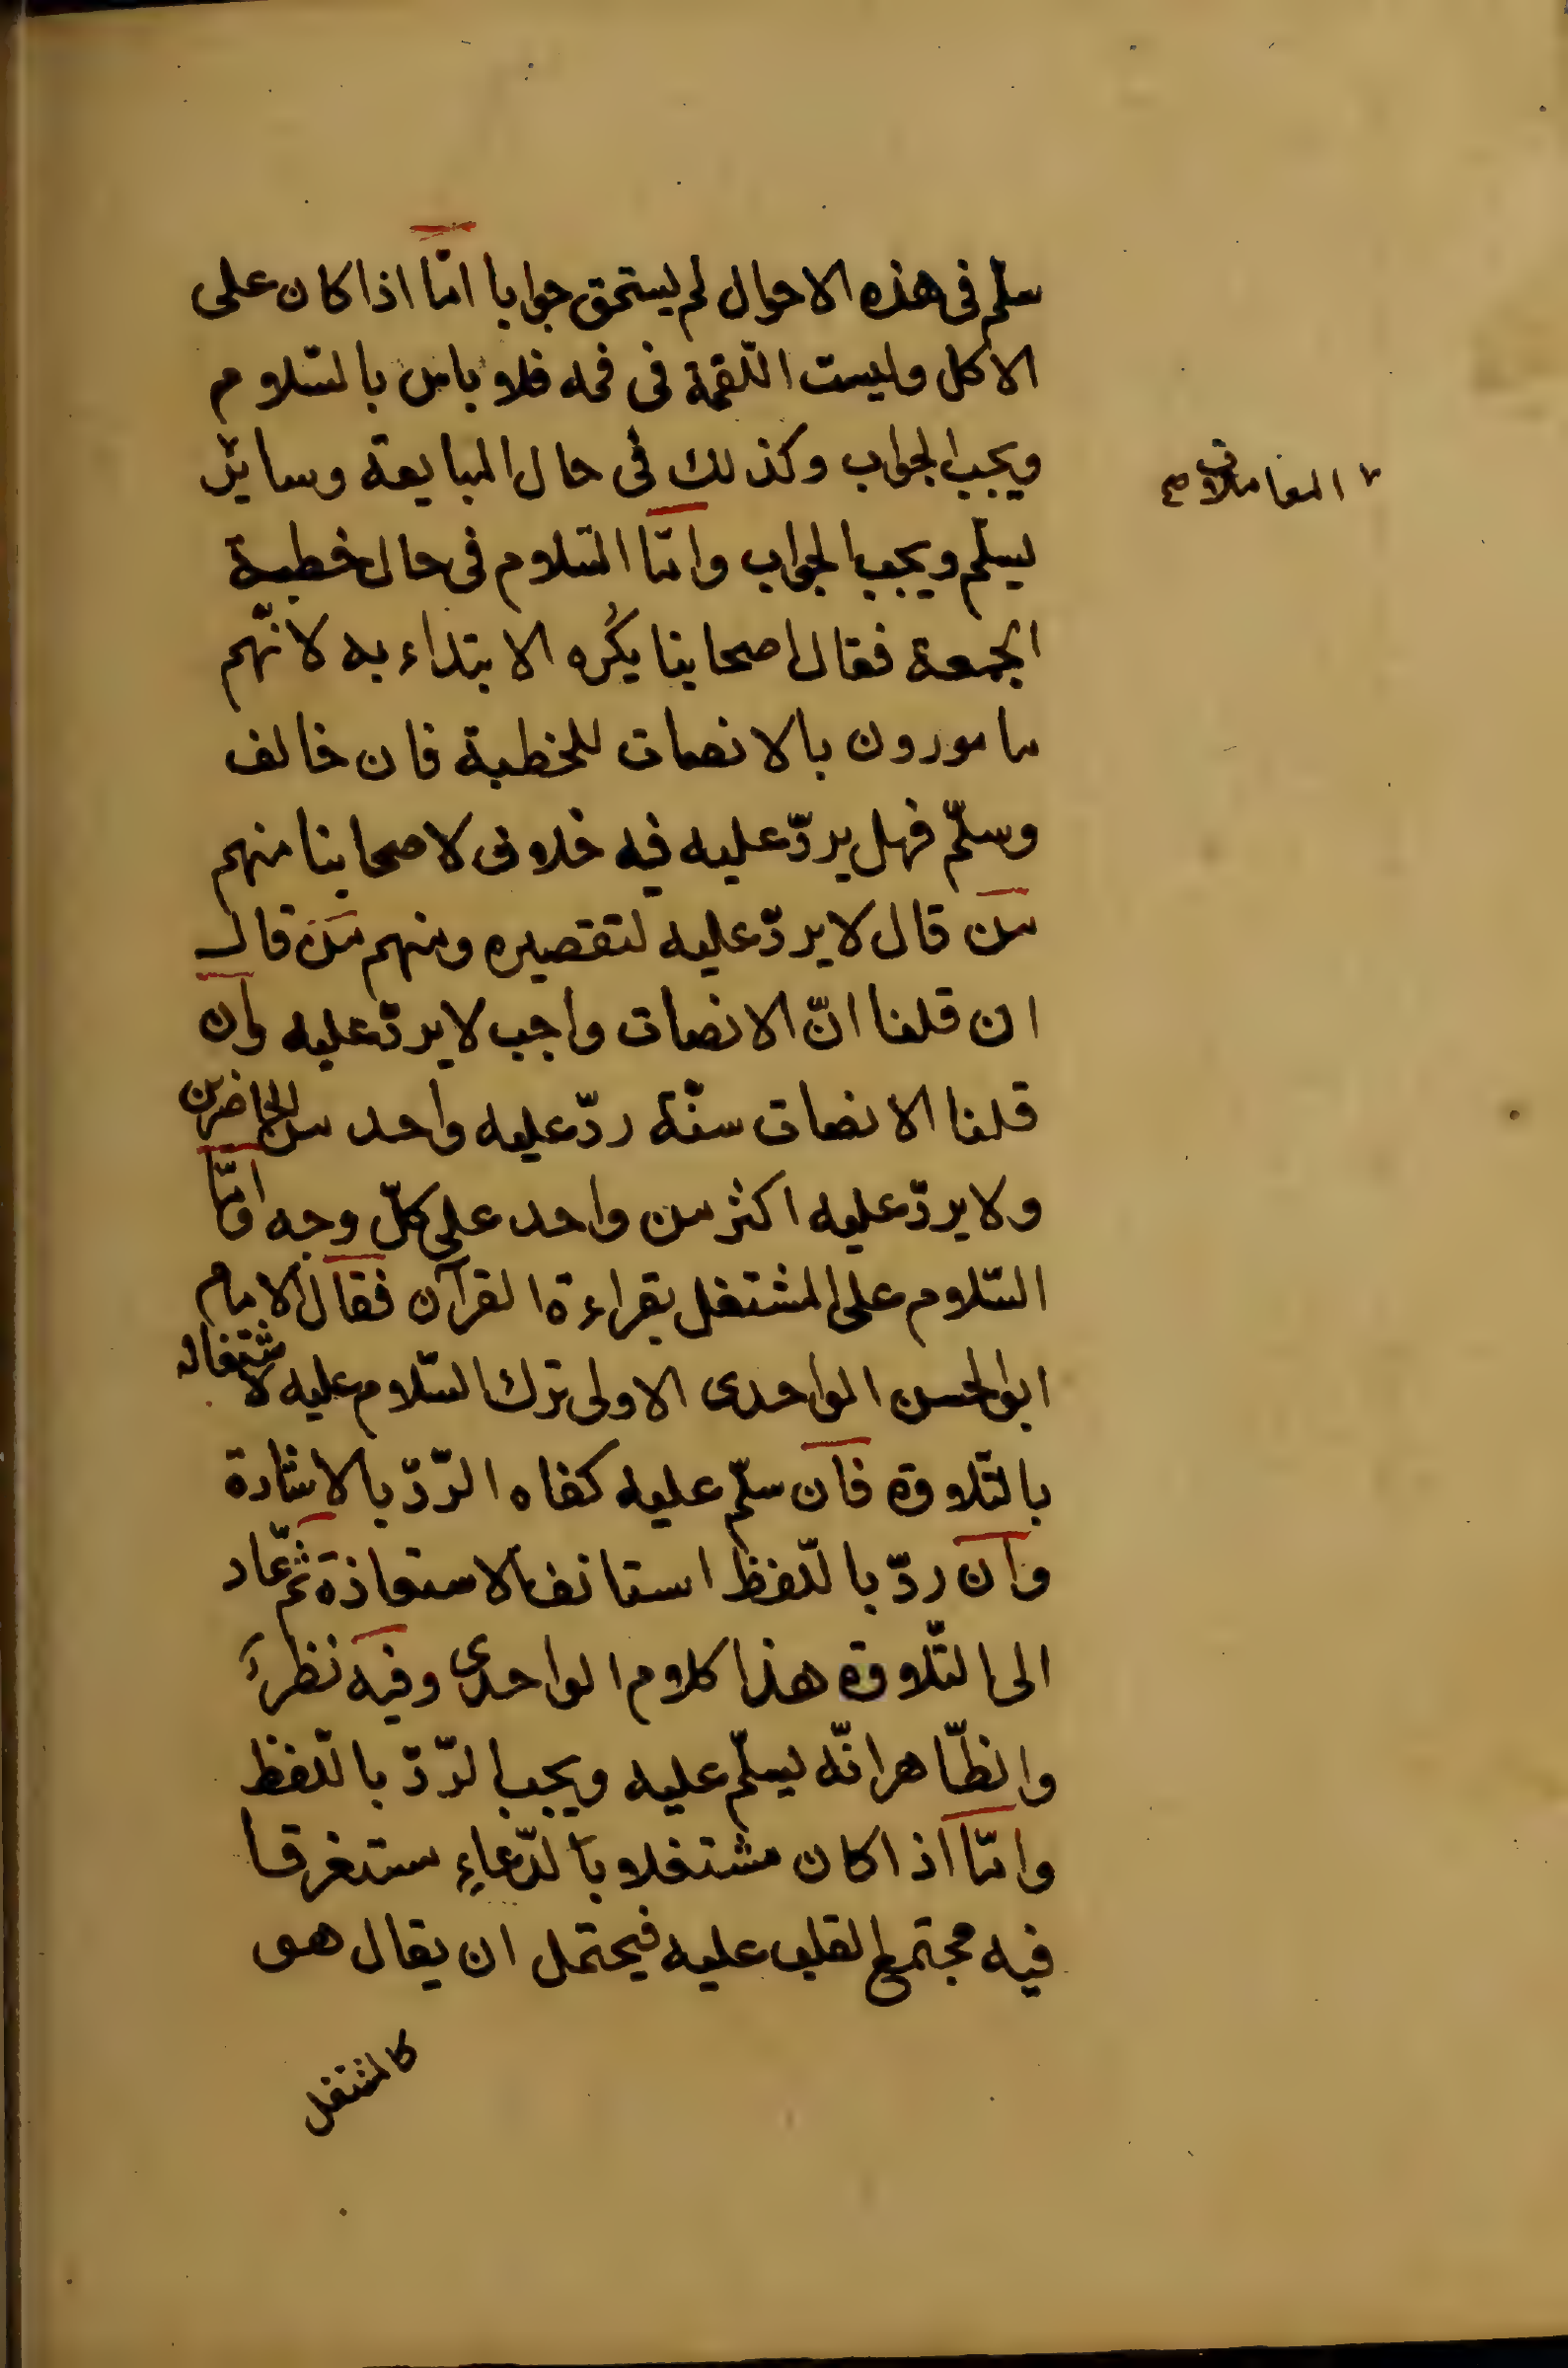 سلّم فى هذه الاحوال لم يستحق جوابا امّا اذا كان على
الاكل وليست اللّقمة فى فمه فلا باس بالسّلام
ويجب الجواب وكذلك فى حال المبايعة وسائر
المعاملات صح
يسلّم ويجب الجواب وامّا السّلام فى حال خطبة
الجمعة فقال اصحابنا يكُره الابتداء به لانّهم
مامورون بالانصات للخطبة فان خالف
وسلّم فهل يردّ عليه فيه خلاف لاصحابنا منهم
مَن قال لا يردّ عليه لتقصيره ومنهم مَن قال
ان قلنا انّ الانصات واجب لا يردّ عليه وان
قلنا الانصات سنّة ردّ عليه واحد من الحاضرين
ولا يردّ عليه اكثر من واحد على كلّ وجه وامّا
السّلام على المشتغل بقراءة القرآن فقال الامام
ابو الحسن الواحدى الاولى ترك السّلام عليه لاشتغاله
بالتّلاوة فان سلّم عليه كفاه الرّدّ بالاشارة
وان ردّ باللّفظ استانف الاستعاذة ثمّ عاد
الى التّلاوة هذا كلام الواحدى وفيه نظر
والظّاهر انّه يسلّم عليه ويجب الرّدّ باللّفظ
وامّا اذا كان مشتغلا بالدّعاءِ مستغرقا
فيه مجتمع القلب عليه فيحتمل ان يقال هو
كالمشتغل